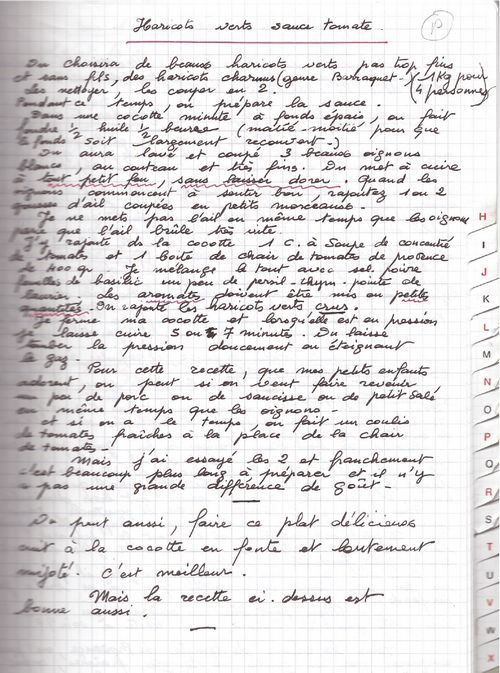 Haricots verts sauce tomate.
P
On choisira de beaux haricots verts pas trop fins
et sans fils, des haricots charnus (genre Barraquet-) (1 Kg pour
les nettoyer, les couper en 2. 4 personnes)
Pendant ce temps, on prépare la sauce.
Dans une cocotte minute à fonds épais, on fait
fondre 1/2 huile 1/2 beurre (moitié-moitié pour que
le fonds soit largement recouvert-)
On aura lavé et coupé 3 beaux oignons
blancs, au couteau et très fins. On met à cuire
à tout petit feu, sans laisser dorer. Quand les
oignons commencent à sentir bon, rajoutez 1 ou 2
gousses d'ail coupées en petits morceaux.
Je ne mets pas l'ail en même temps que les oignons
parce que l'ail brûle très vite.
J'y rajoute ds la cocotte 1 C. à Soupe de concentré
de tomates et 1 boîte de chair de tomates de
de 400 gr. Je mélange le tout avec sel. poivre
feuilles de basilic un peu de persil-thym. pointe de
laurier. des aromates doivent être mis en petites
quantités. On rajoute les haricots verts crus.
Je ferme ma cocotte et lorsqu'elle est en pression
je laisse cuire 5 ou 7 minutes. On laisse
tomber la pression doucement en éteignant
le gaz.
Pour cette recette, que mes petits enfants
adorent, on peut si on veut faire revenir
un peu de porc ou de saucisse ou de petit salé
en même temps que les oignons-
et si on a le temps, on fait un coulis
de tomates fraîches à la place de la chair
de tomates-
Mais j'ai essayé les 2 et franchement
c'est beaucoup plus long à préparer et il n'y
a pas une grande différence de goût-
On peut aussi, faire ce plat délicieux
cuit à la cocotte en fonte et lentement
mijoté. C'est meilleur.
Mais la recette ci-dessus est
bonne aussi.
H
I
J
K
L
M
N
O
P
Q
R
S
T
U
V
W
X